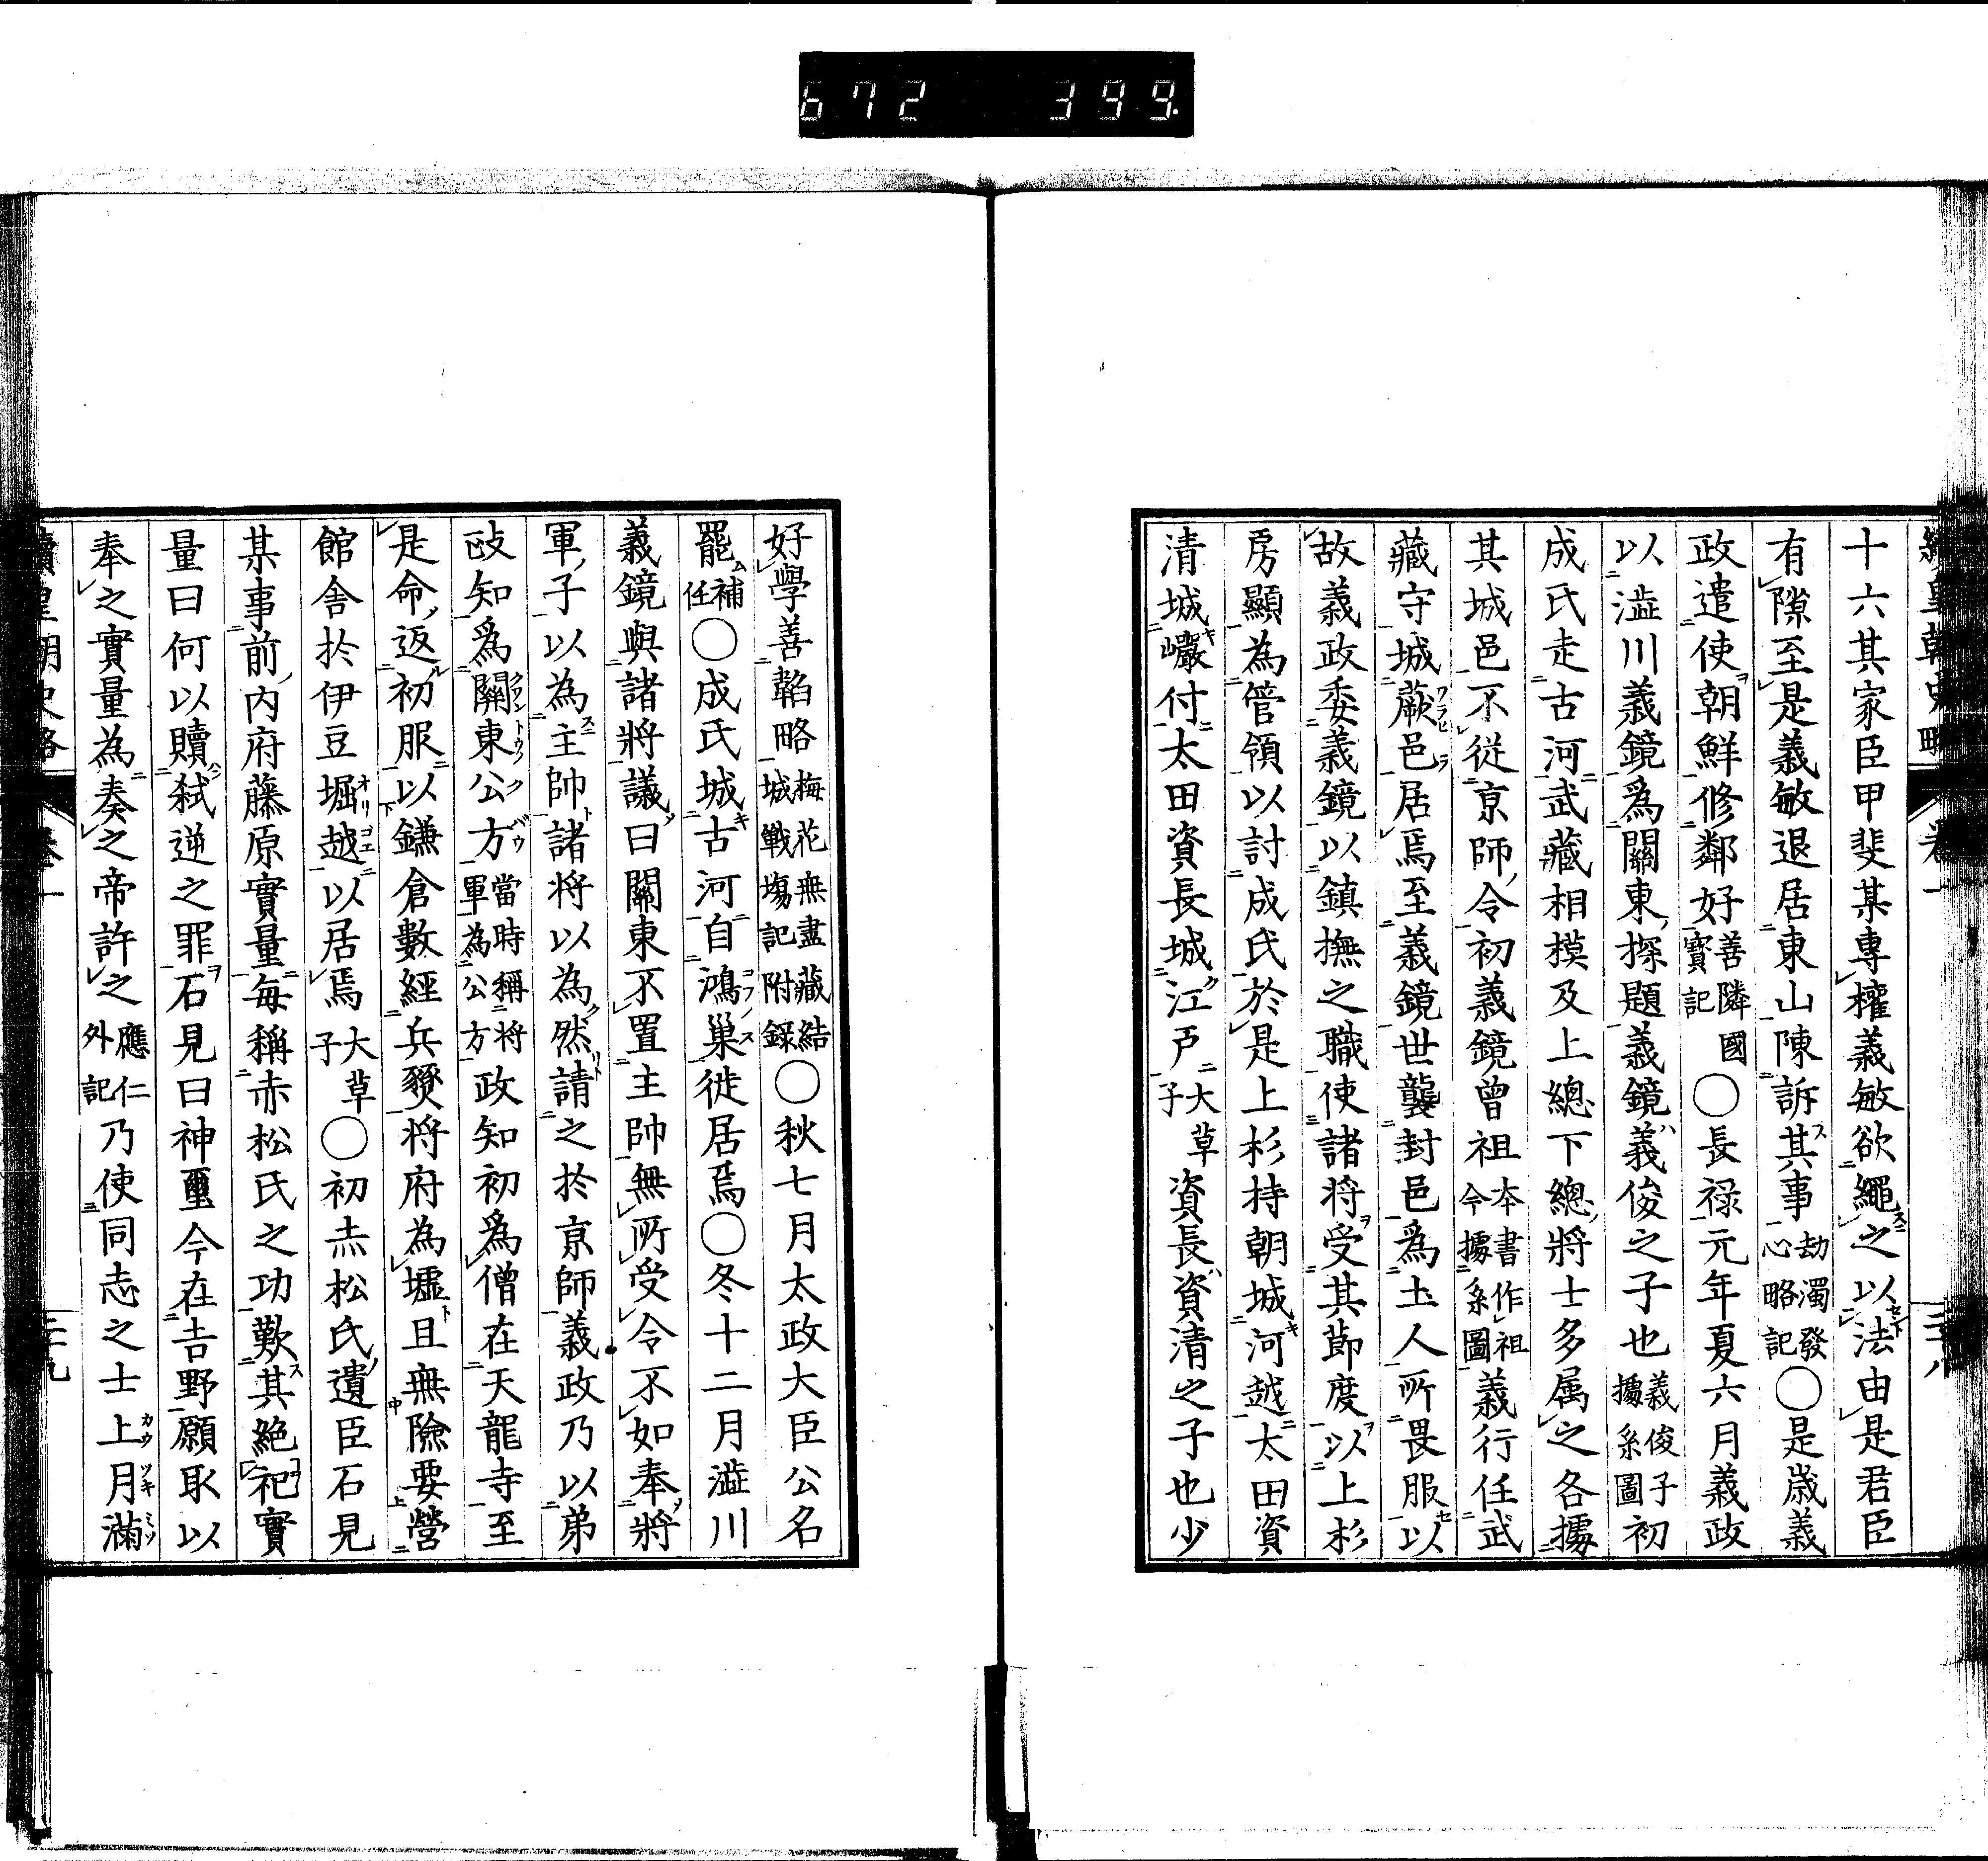 672 399.
十六其家臣甲斐某專權義敏欲繩之以法由是君臣
有隙至是義敏退居東山陳訴其事劫濁發心略記〇是歳義
政遣使朝鮮修鄰好善隣國寳記〇長禄元年夏六月義政
以澁川義鏡爲關東探題義鏡義俊之子也義俊子據系圖初
成氏走古河武藏相模及上總下總將士多属之各據
其城邑不從京師令初義鏡曾祖本書作祖今據系圖義行任武
藏守城蕨邑居焉至義鏡世襲封邑爲土人所畏服以
故義政委義鏡以鎮撫之職使諸將受其節度以上杉
房顯為管領以討成氏於是上杉持朝城河越太田資
清城巖付太田資長城江戸大草子資長資清之子也少
好學善韜略梅花無盡藏結城戰塲記附録〇秋七月太政大臣公名
罷補任〇成氏城古河自鴻巢徙居焉〇冬十二月澁川
義鏡與諸將議曰關東不置主帥無所受令不如奉將
軍子以為主帥諸将以為然請之於京師義政乃以弟
政知爲關東公方當時稱将軍為公方政知初爲僧在天龍寺至
是命返初服以鎌倉數經兵燹将府為墟且無險要營
館舎於伊豆堀越以居焉大草子〇初赤松氏遺臣石見
某事前内府藤原實量毎稱赤松氏之功歎其絶祀實
量曰何以贖弑逆之罪石見曰神璽今在吉野願取以
奉之實量為奏之帝許之應仁外記乃使同志之士上月滿